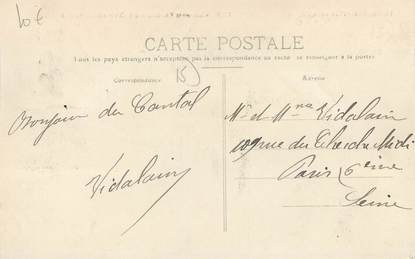 10€
CARTE POSTALE
Tous les pays étrangers n'acceptent pas la correspondance au recto se renseigner à la poste
Correspondance
15
Adresse
Bonjour du Cantal
Vidalain
Mr et Mme Vidalain
109 rue du Cherche Midi
Paris 6ème
Seine